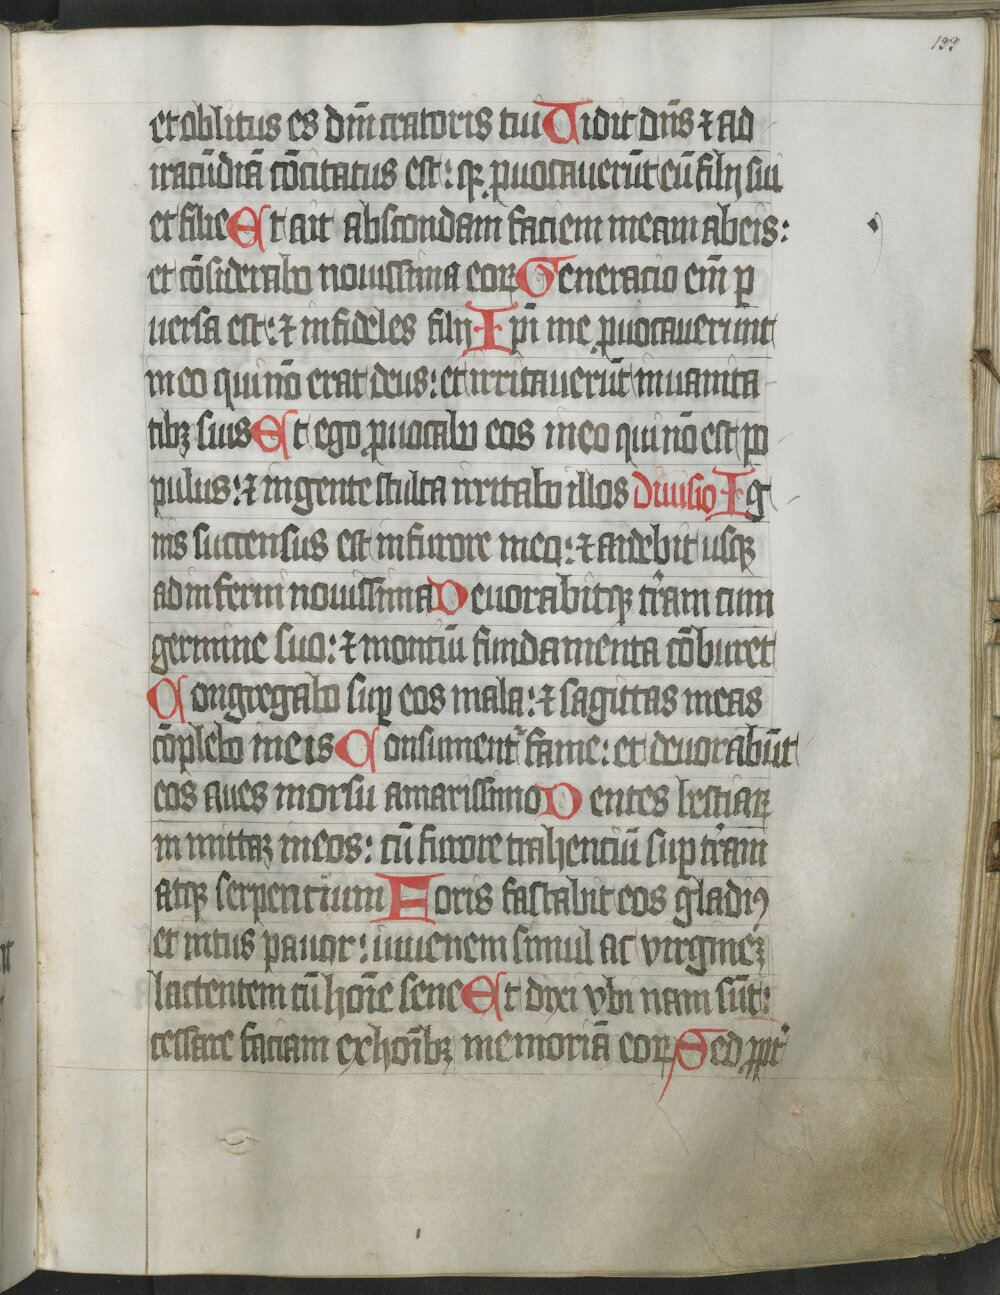 199
et oblitus es dn̄i creatoris tui Uidit dn̄s ⁊ ad
iracūdiā cōcitatus est: qꝛ ꝓuocauerūt eū filij sui
et filie Et ait abscondam faciem meam ab eis:
et cōsiderabo nouissima eoꝝ Generacio em̄ ꝑ
uersa est: ⁊ infideles filij Ip̄i me ꝓuocauerunt
in eo qui nō erat deus: et irritauerūt in uanita
tibꝫ suis Et ego ꝓuocabo eos in eo qui nō est po
pulus: ⁊ in gente stulta irritabo illos Diuisio Ig
nis succensus est in furore meo: ⁊ ardebit usqꝫ
ad inferni nouissima Deuorabitqꝫ t̄ram cum
germine suo: ⁊ montiū fundamenta cōburet
Congregabo suꝑ eos mala: ⁊ sagittas meas
cōplebo in eis Consument᷑ fame: et deuorabūt
eos aues morsu amarissimo Dentes bestiaꝝ
in mittaꝫ in eos: cū furore trahenciū suꝑ t̄ram
atqꝫ serpentium Foris fastabit eos gladiꝰ
et intus pauor: iuuenem simul ac virgineꝫ
lactentem cū hoīe sene Et dixi vbi nam sūt:
cessare faciam ex hoībꝫ memoriā eoꝝ Sed ꝓpt᷑